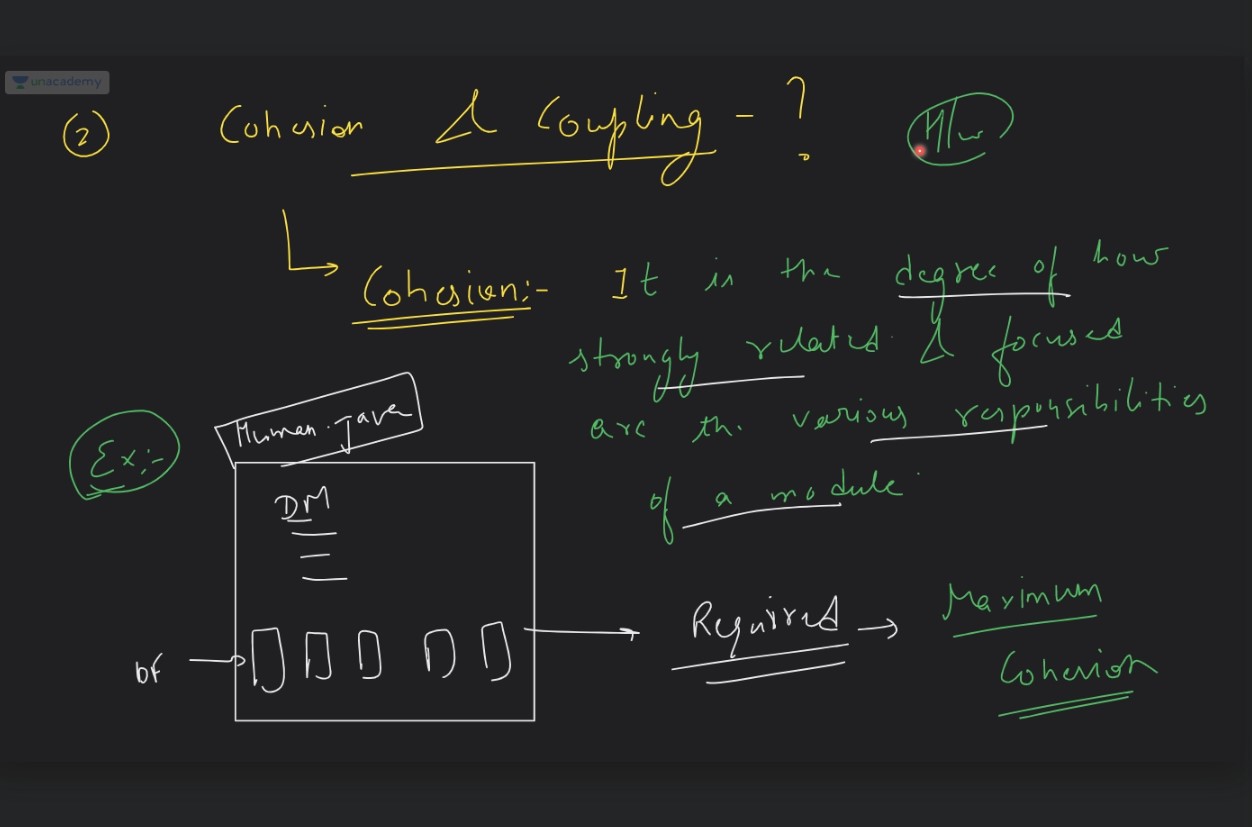 unacademy
② Cohesion & Coupling - ?
H/w
Cohesion:- It is the degree of how
strongly related & focused
are the various responsibilities
of a module
Ex:-
Human.Java
DM
Required → Maximum
Cohesion